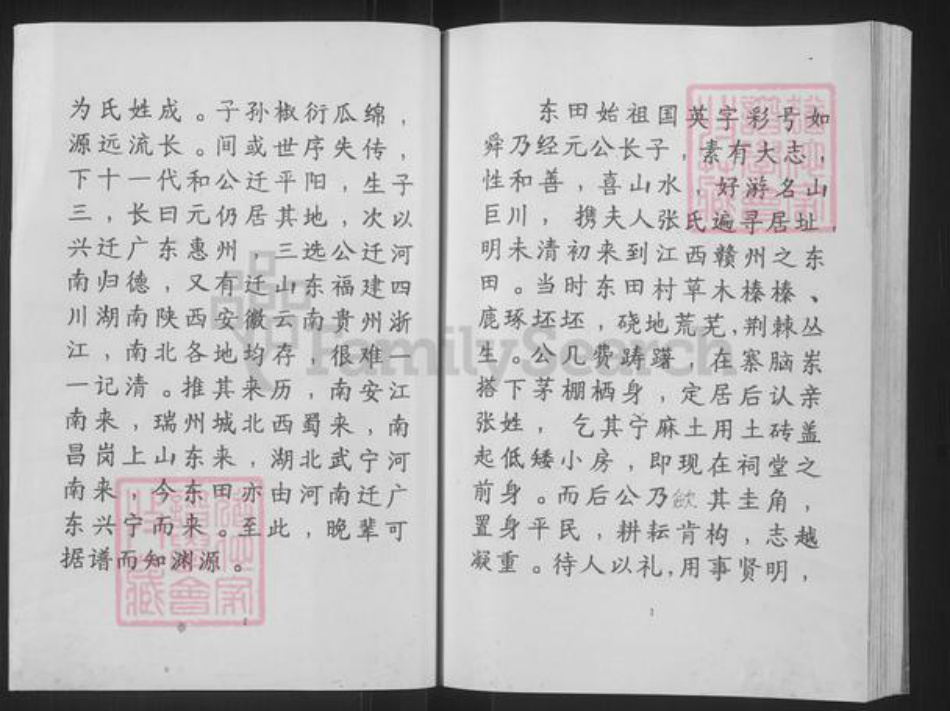 为氏姓成。子孙椒衍瓜绵，
源远流长。间或世序失传，
下十一代和公迁平阳，生子
三，长曰元仍居其地，次以
兴迁广东惠州，三选公迁河
南归德，又有迁山东福建四
川湖南陕西安徽云南贵州浙
江，南北各地均存，很难一
一记清。推其来历，南安江
南来，瑞州城北西蜀来，南
昌岗上山东来，湖北武宁河
南来，今东田亦由河南迁广
东兴宁而来。至此，晚辈可
据谱而知渊源。
东田始祖国英字彩号如
舜乃经元公长子，素有大志，
性和善，喜山水，好游名山
巨川，携夫人张氏遍寻居址，
明末清初来到江西赣州之东
田。当时东田村草木榛榛、
鹿琢坯坯，硗地荒芜，荆棘丛
生。公几费踌躇，在寨脑岽
搭下茅棚栖身，定居后认亲
张姓，乞其宁麻土用土砖盖
起低矮小房，即现在祠堂之
前身。而后公乃敛其圭角，
置身平民，耕耘肯构，志越
凝重。待人以礼，用事贤明，
1
FamilySearch